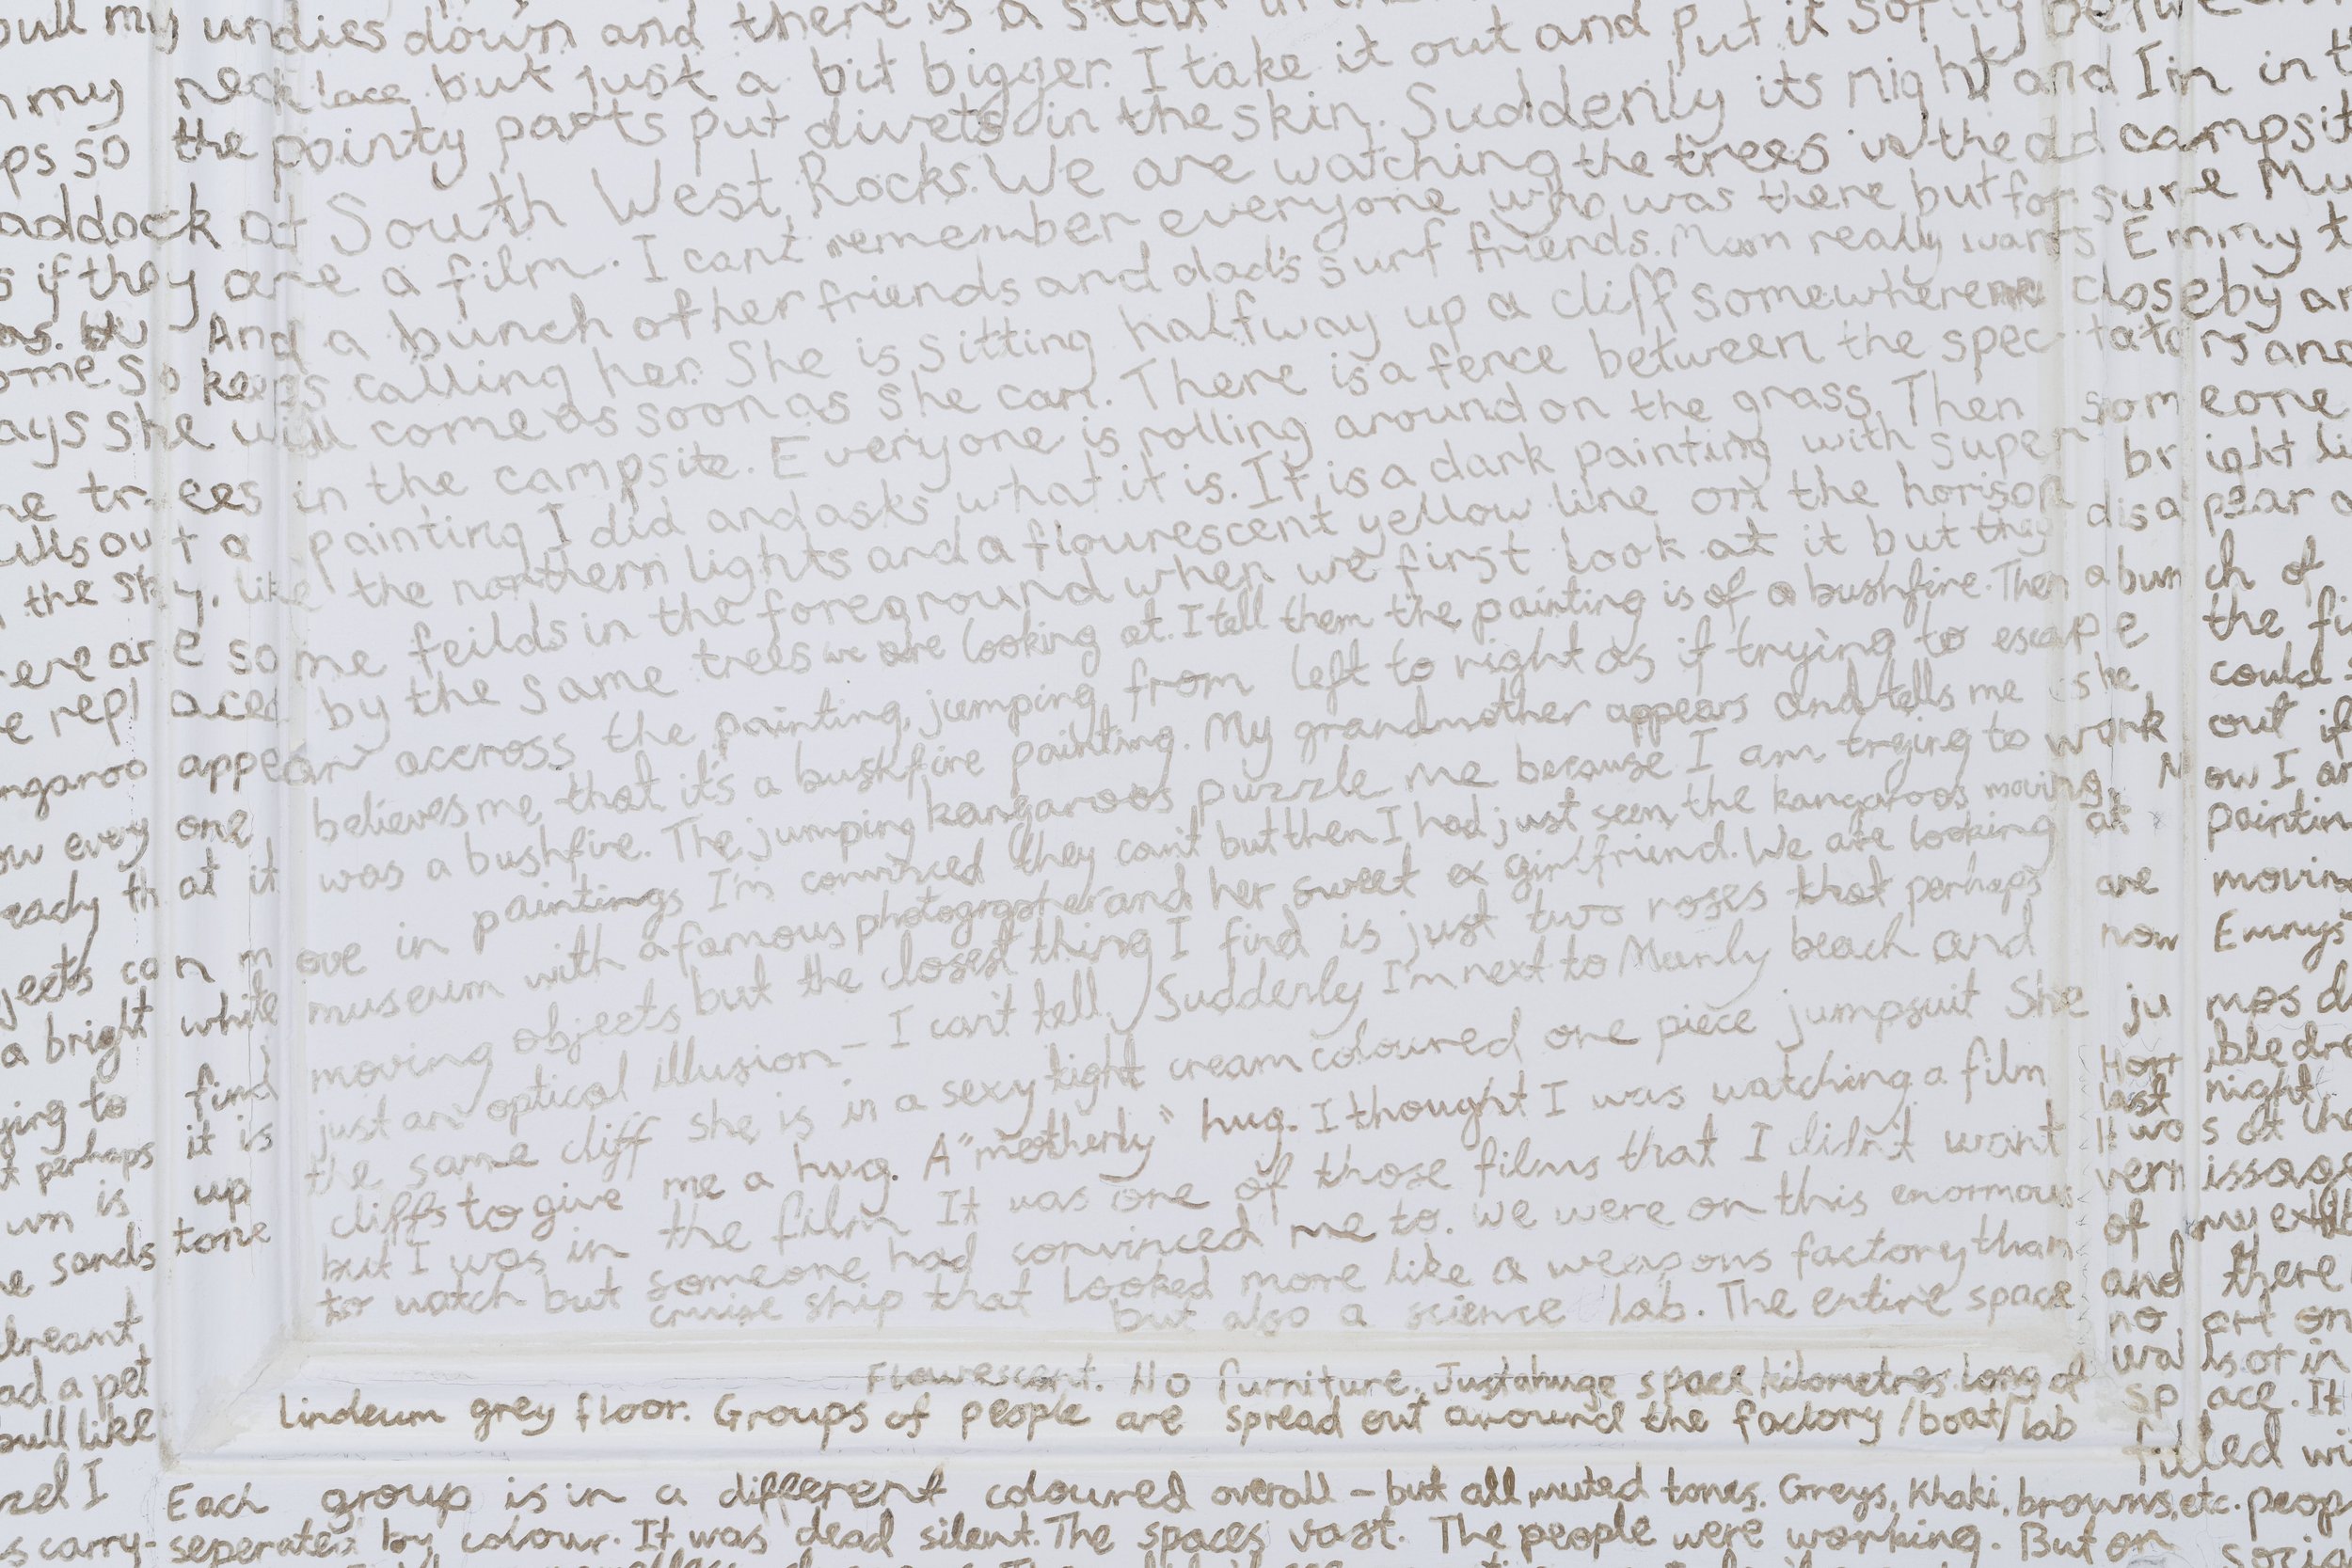 pull my undies down and there is a
n my necklace but just a bit bigger. I take it out and put it softly
ps so the pointy parts put divets in the skin. Suddenly its night and I'm in t
addock at South West Rocks. We are watching the trees in the old campsit
s if they are a film. I cant remember everyone who was there but for sure Mu
And a bunch of her friends and dad's surf friends. Mum really wants Emmy t
ome so keeps calling her. She is sitting halfway up a cliff somewhere closeby an
ays she will come as soon as she can. There is a fence between the spectators and
he trees in the campsite. Everyone is rolling around on the grass. Then someone
ulls out a painting I did and asks what it is. It is a dark painting with super bright li
the sky, like the northern lights and a flourescent yellow line on the horison
ere are some feilds in the foreground when we first look at it but they disapear a
e replaced by the same trees we are looking at. I tell them the painting is of a bushfire. Then a bunch of
ngaroo appear accross the painting, jumping from left to right as if trying to escape the fi
ow every one believes me that it's a bushfire painting. My grandmother appears and tells me she could
eady that it was a bushfire. The jumping kangaroos puzzle me because I am trying to work out if
jects can move in paintings I'm convinced they can't but then I had just seen the kangaroos moving. Now I am
a bright white museum with a famous photographer and her sweet ex girlfriend. We are looking at paintin
ying to find moving objects but the closest thing I find is just two roses that perhaps are moving
t perhaps it is just an optical illusion - I can't tell. Suddenly I'm next to Manly beach and now Emys
wn is up the same cliff she is in a sexy tight cream coloured one piece jumpsuit She jumps d
e sandstone cliffs to give me a hug. A "motherly" hug. I thought I was watching a film
but I was in the film It was one of those films that I didn't want
to watch but someone had convinced me to. We were on this enormous
cruise ship that looked more like a weapons factory than
but also a science lab. The entire space
Flourescent. No furniture. Just a huge space kilometres long of
lindeum grey floor. Groups of people are spread out around the factory/boat/lab
Each group is in a different coloured overall - but all muted tones. Greys, Khaki, browns, etc. peop
seperated by colour. It was dead silent. The spaces vast. The people were working. But on
dreamt
ad a pet
bull like
zel I
s carry-
Horrible dre
last night.
It was at the
vernissage
of my exhib
and there
no art on
walls or in
space. It
filled wi